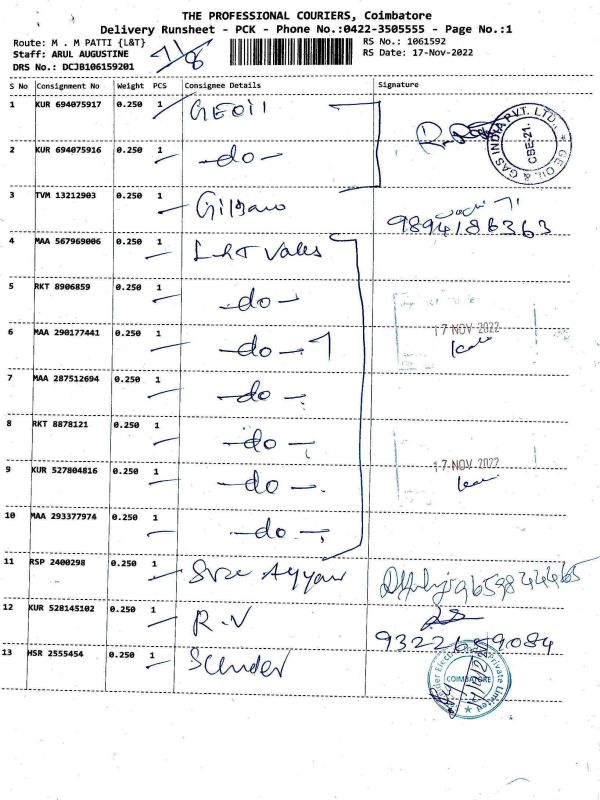 THE PROFESSIONAL COURIERS, Coimbatore
Delivery Runsheet - PCK - Phone No.:0422-3505555 - Page No.:1
Route: M . M PATTI {L&T}
RS No.: 1061592
Staff: ARUL AUGUSTINE
RS Date: 17-Nov-2022
DRS No.: DCJB106159201
S No Consignment No Weight PCS Consignee Details Signature
1 KUR 694075917 0.250 1 GEOil
2 KUR 694075916 0.250 1 -do-
GE OIL & GAS INDIA PVT. LTD.,
CBE-21.
3 TVM 13212903 0.250 1
9894186363
4 MAA 567969006 0.250 1 L&T Valves
5 RKT 8906859 0.250 1 -do-
6 MAA 290177441 0.250 1 -do-
17 NOV 2022
7 MAA 287512694 0.250 1 -do-
8 RKT 8878121 0.250 1 -do-
9 KUR 527804816 0.250 1 -do-
17 NOV 2022
10 MAA 293377974 0.250 1 -do-
11 RSP 2400298 0.250 1 Sree Ayyan
12 KUR 528145102 0.250 1 R.V
13 HSR 2555454 0.250 1
COIMBATORE
Private Limited